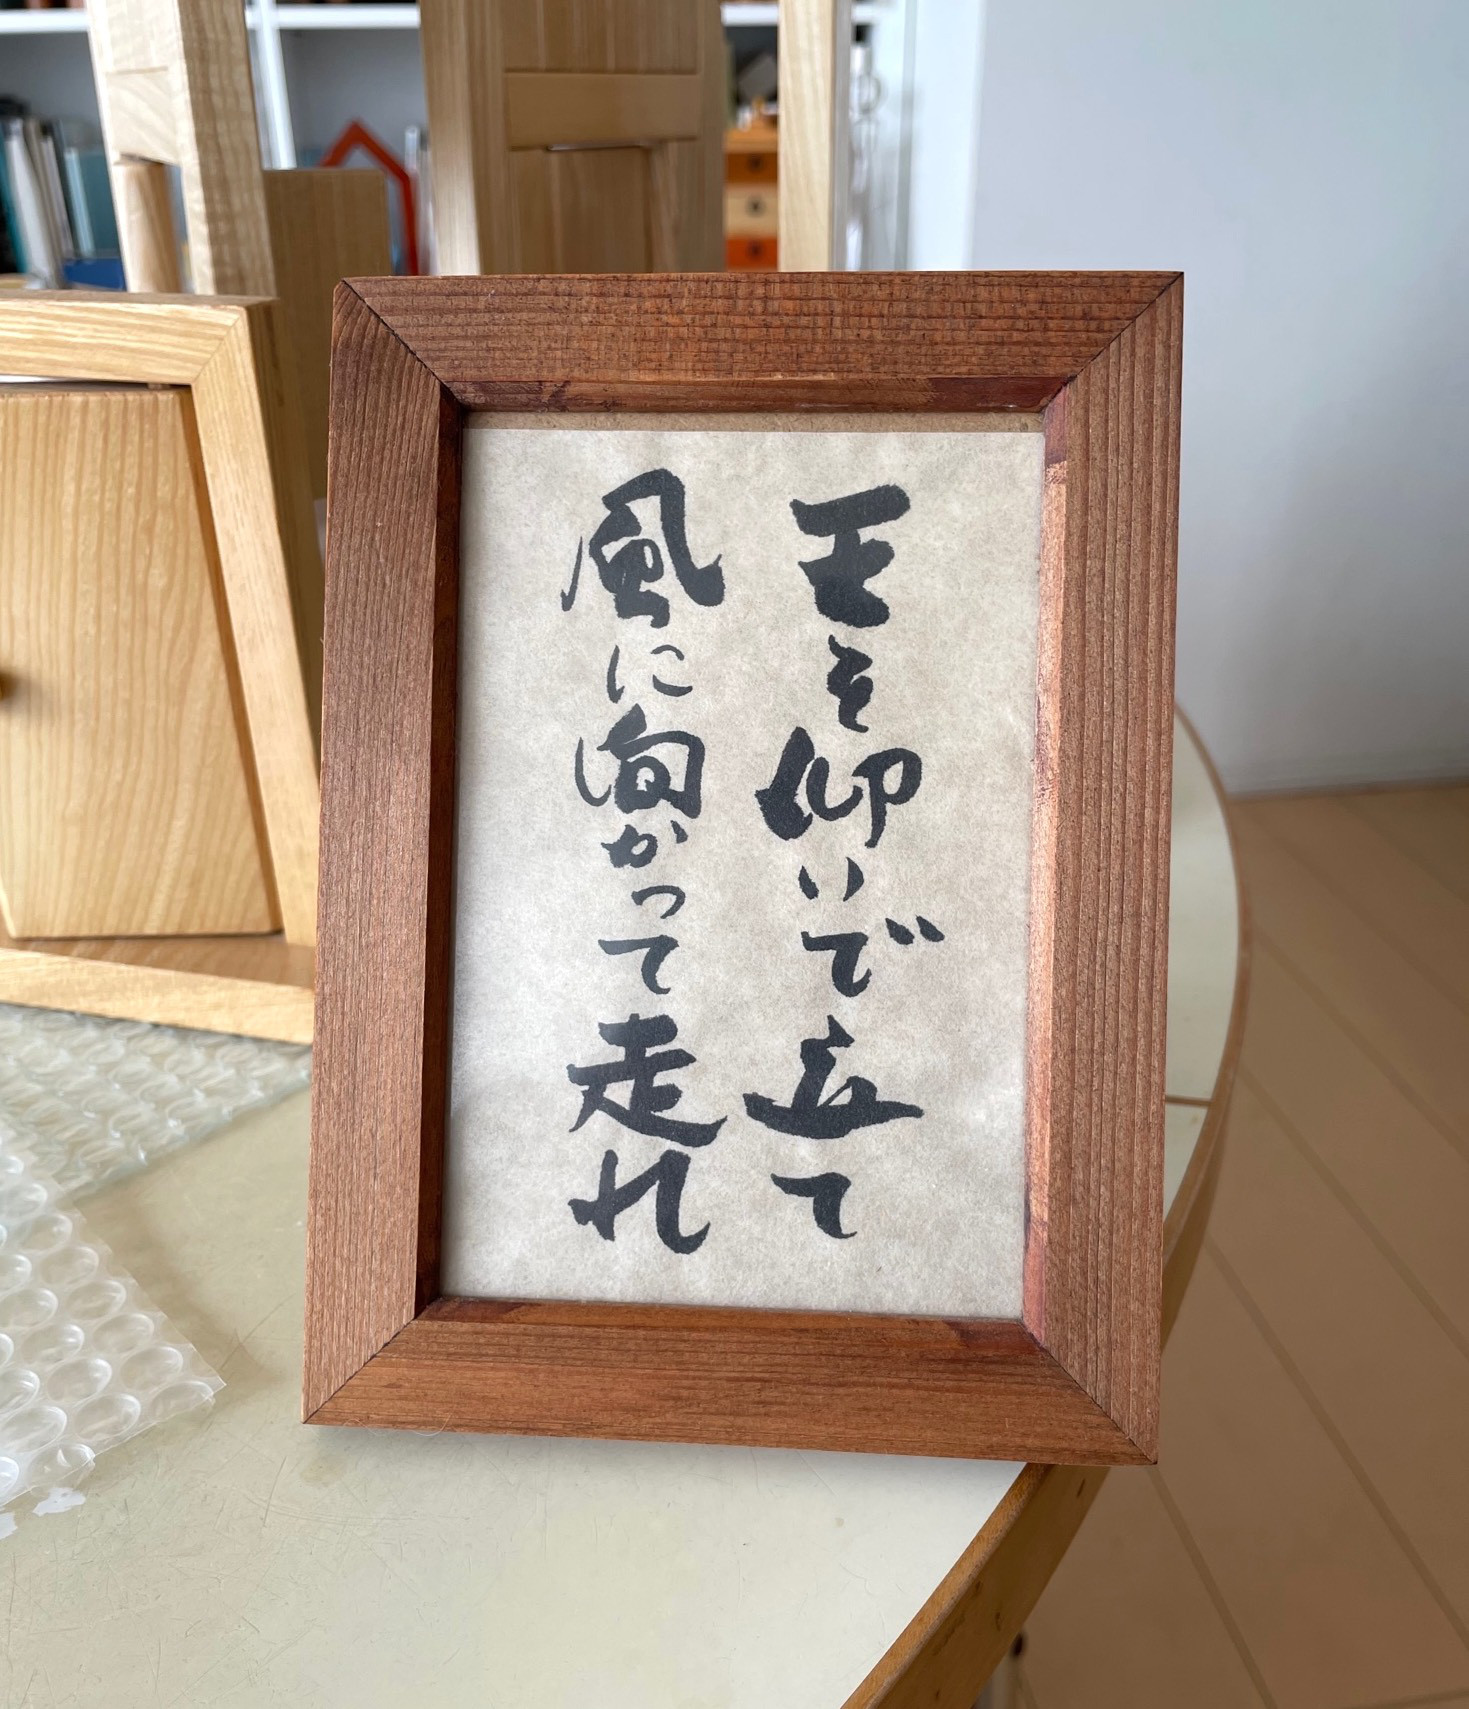 天を仰いで立て
風に向かって走れ